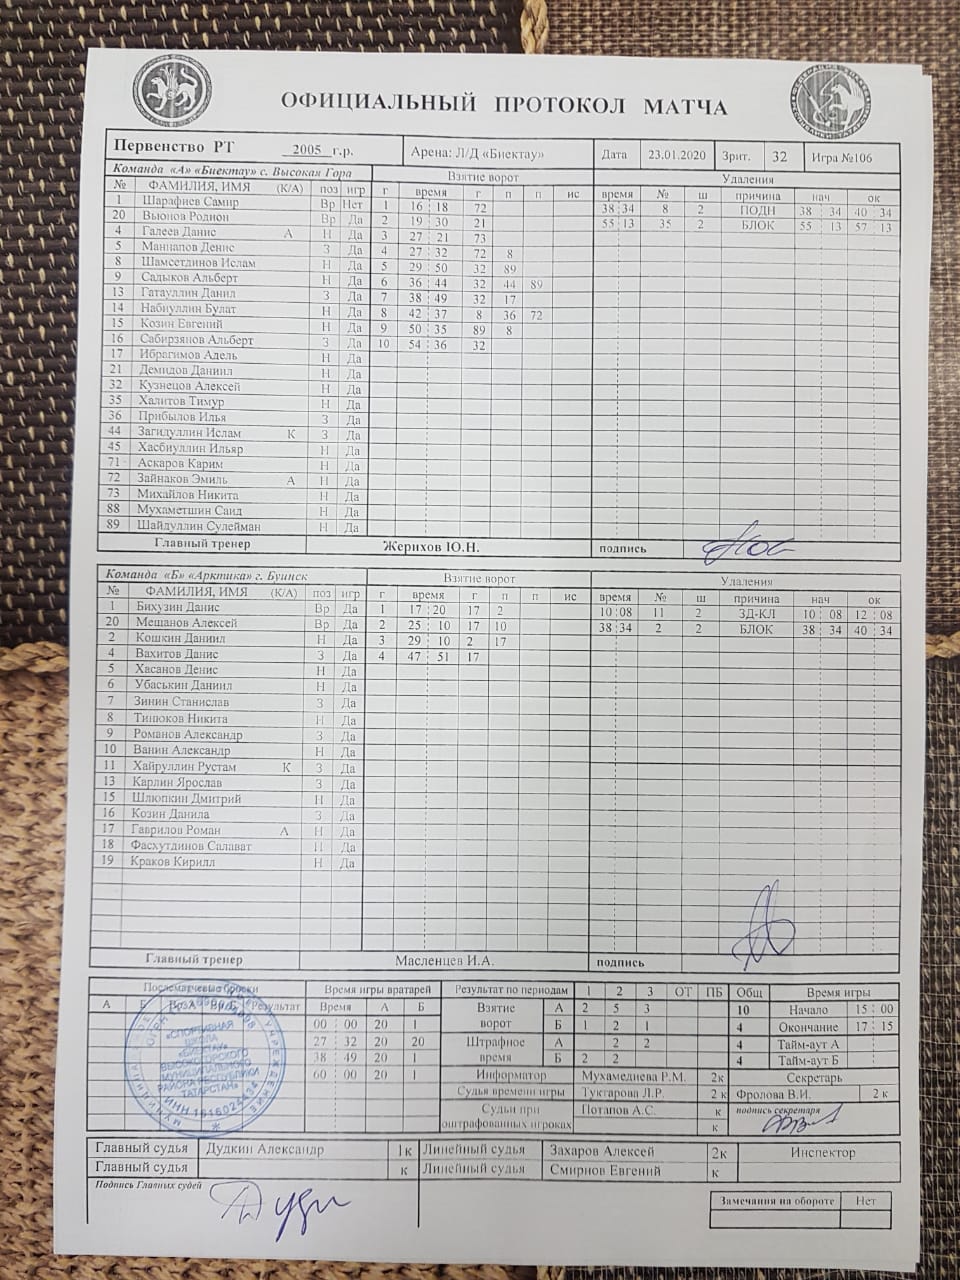 ОФИЦИАЛЬНЫЙ ПРОТОКОЛ МАТЧА
Первенство РТ 2005 г.р. Арена: Л/Д «Биектау» Дата 23.01.2020 Зрит. 32 Игра №106
Команда «А» «Биектау» с. Высокая Гора Взятие ворот Удаления
№ ФАМИЛИЯ, ИМЯ (К/А) поз игр г время г п п ис время № ш причина нач ок
1 Шарафиев Самир Вр Нет 1 16 : 18 72 38 34 8 2 ПОДН 38 34 40 34
20 Вьюнов Родион Вр Да 2 19 30 21 55 13 35 2 БЛОК 55 13 57 13
4 Галеев Данис А Н Да 3 27 21 73
5 Маннапов Денис З Да 4 27 32 72 8
8 Шамсетдинов Ислам Н Да 5 29 50 32 89
9 Садыков Альберт Н Да 6 36 44 32 44 89
13 Гатауллин Данил З Да 7 38 49 32 17
14 Набиуллин Булат Н Да 8 42 37 8 36 72
15 Козин Евгений Н Да 9 50 35 89 8
16 Сабирзянов Альберт З Да 10 54 36 32
17 Ибрагимов Адель Н Да
21 Демидов Даниил Н Да
32 Кузнецов Алексей Н Да
35 Халитов Тимур Н Да
36 Прибылов Илья З Да
44 Загидуллин Ислам К З Да
45 Хасбиуллин Ильяр Н Да
71 Аскаров Карим Н Да
72 Зайнаков Эмиль А Н Да
73 Михайлов Никита Н Да
88 Мухаметшин Саид Н Да
89 Шайдуллин Сулейман Н Да
Главный тренер Жерихов Ю.Н. подпись
Команда «Б» «Арктика» г. Буинск Взятие ворот Удаления
№ ФАМИЛИЯ, ИМЯ (К/А) поз игр г время г п п ис время № ш причина нач ок
1 Бихузин Данис Вр Да 1 17 20 17 2 10 08 11 2 ЗД-КЛ 10 08 12 08
20 Мешанов Алексей Вр Да 2 25 10 17 10 38 34 2 2 БЛОК 38 34 40 34
2 Кошкин Даниил Н Да 3 29 10 2 17
4 Вахитов Данис З Да 4 47 51 17
5 Хасанов Денис Н Да
6 Убаськин Даниил Н Да
7 Зинин Станислав З Да
8 Тинюков Никита Н Да
9 Романов Александр З Да
10 Ванин Александр Н Да
11 Хайруллин Рустам К З Да
13 Карлин Ярослав З Да
15 Шлюпкин Дмитрий Н Да
16 Козин Данила З Да
17 Гаврилов Роман А Н Да
18 Фасхутдинов Салават Н Да
19 Краков Кирилл Н Да
Главный тренер Масленцев И.А. подпись
Послематчевые броски Время игры вратарей Результат по периодам 1 2 3 ОТ ПБ Общ Время игры
А Б Вр.Б Результат Время А Б Взятие ворот А 2 5 3 10 Начало 15 00
00 00 20 1 Б 1 2 1 4 Окончание 17 15
27 32 20 20 Штрафное время А 2 2 4 Тайм-аут А
38 49 20 1 Б 2 2 4 Тайм-аут Б
60 00 20 1 Информатор Мухамедиева Р.М. 2к Секретарь
Судья времени игры Туктарова Л.Р. 2 к Фролова В.И. 2 к
Судьи при оштрафованных игроках Потапов А.С. к подпись секретаря
к
«СПОРТИВНАЯ
ШКОЛА
«БИЕКТАУ»
ВЫСОКОГОРСКОГО
МУНИЦИПАЛЬНОГО
РАЙОНА РЕСПУБЛИКИ
ТАТАРСТАН»
Главный судья Дудкин Александр 1к Линейный судья Захаров Алексей 2к Инспектор
Главный судья к Линейный судья Смирнов Евгений к
Подпись Главных судей
Замечания на обороте Нет